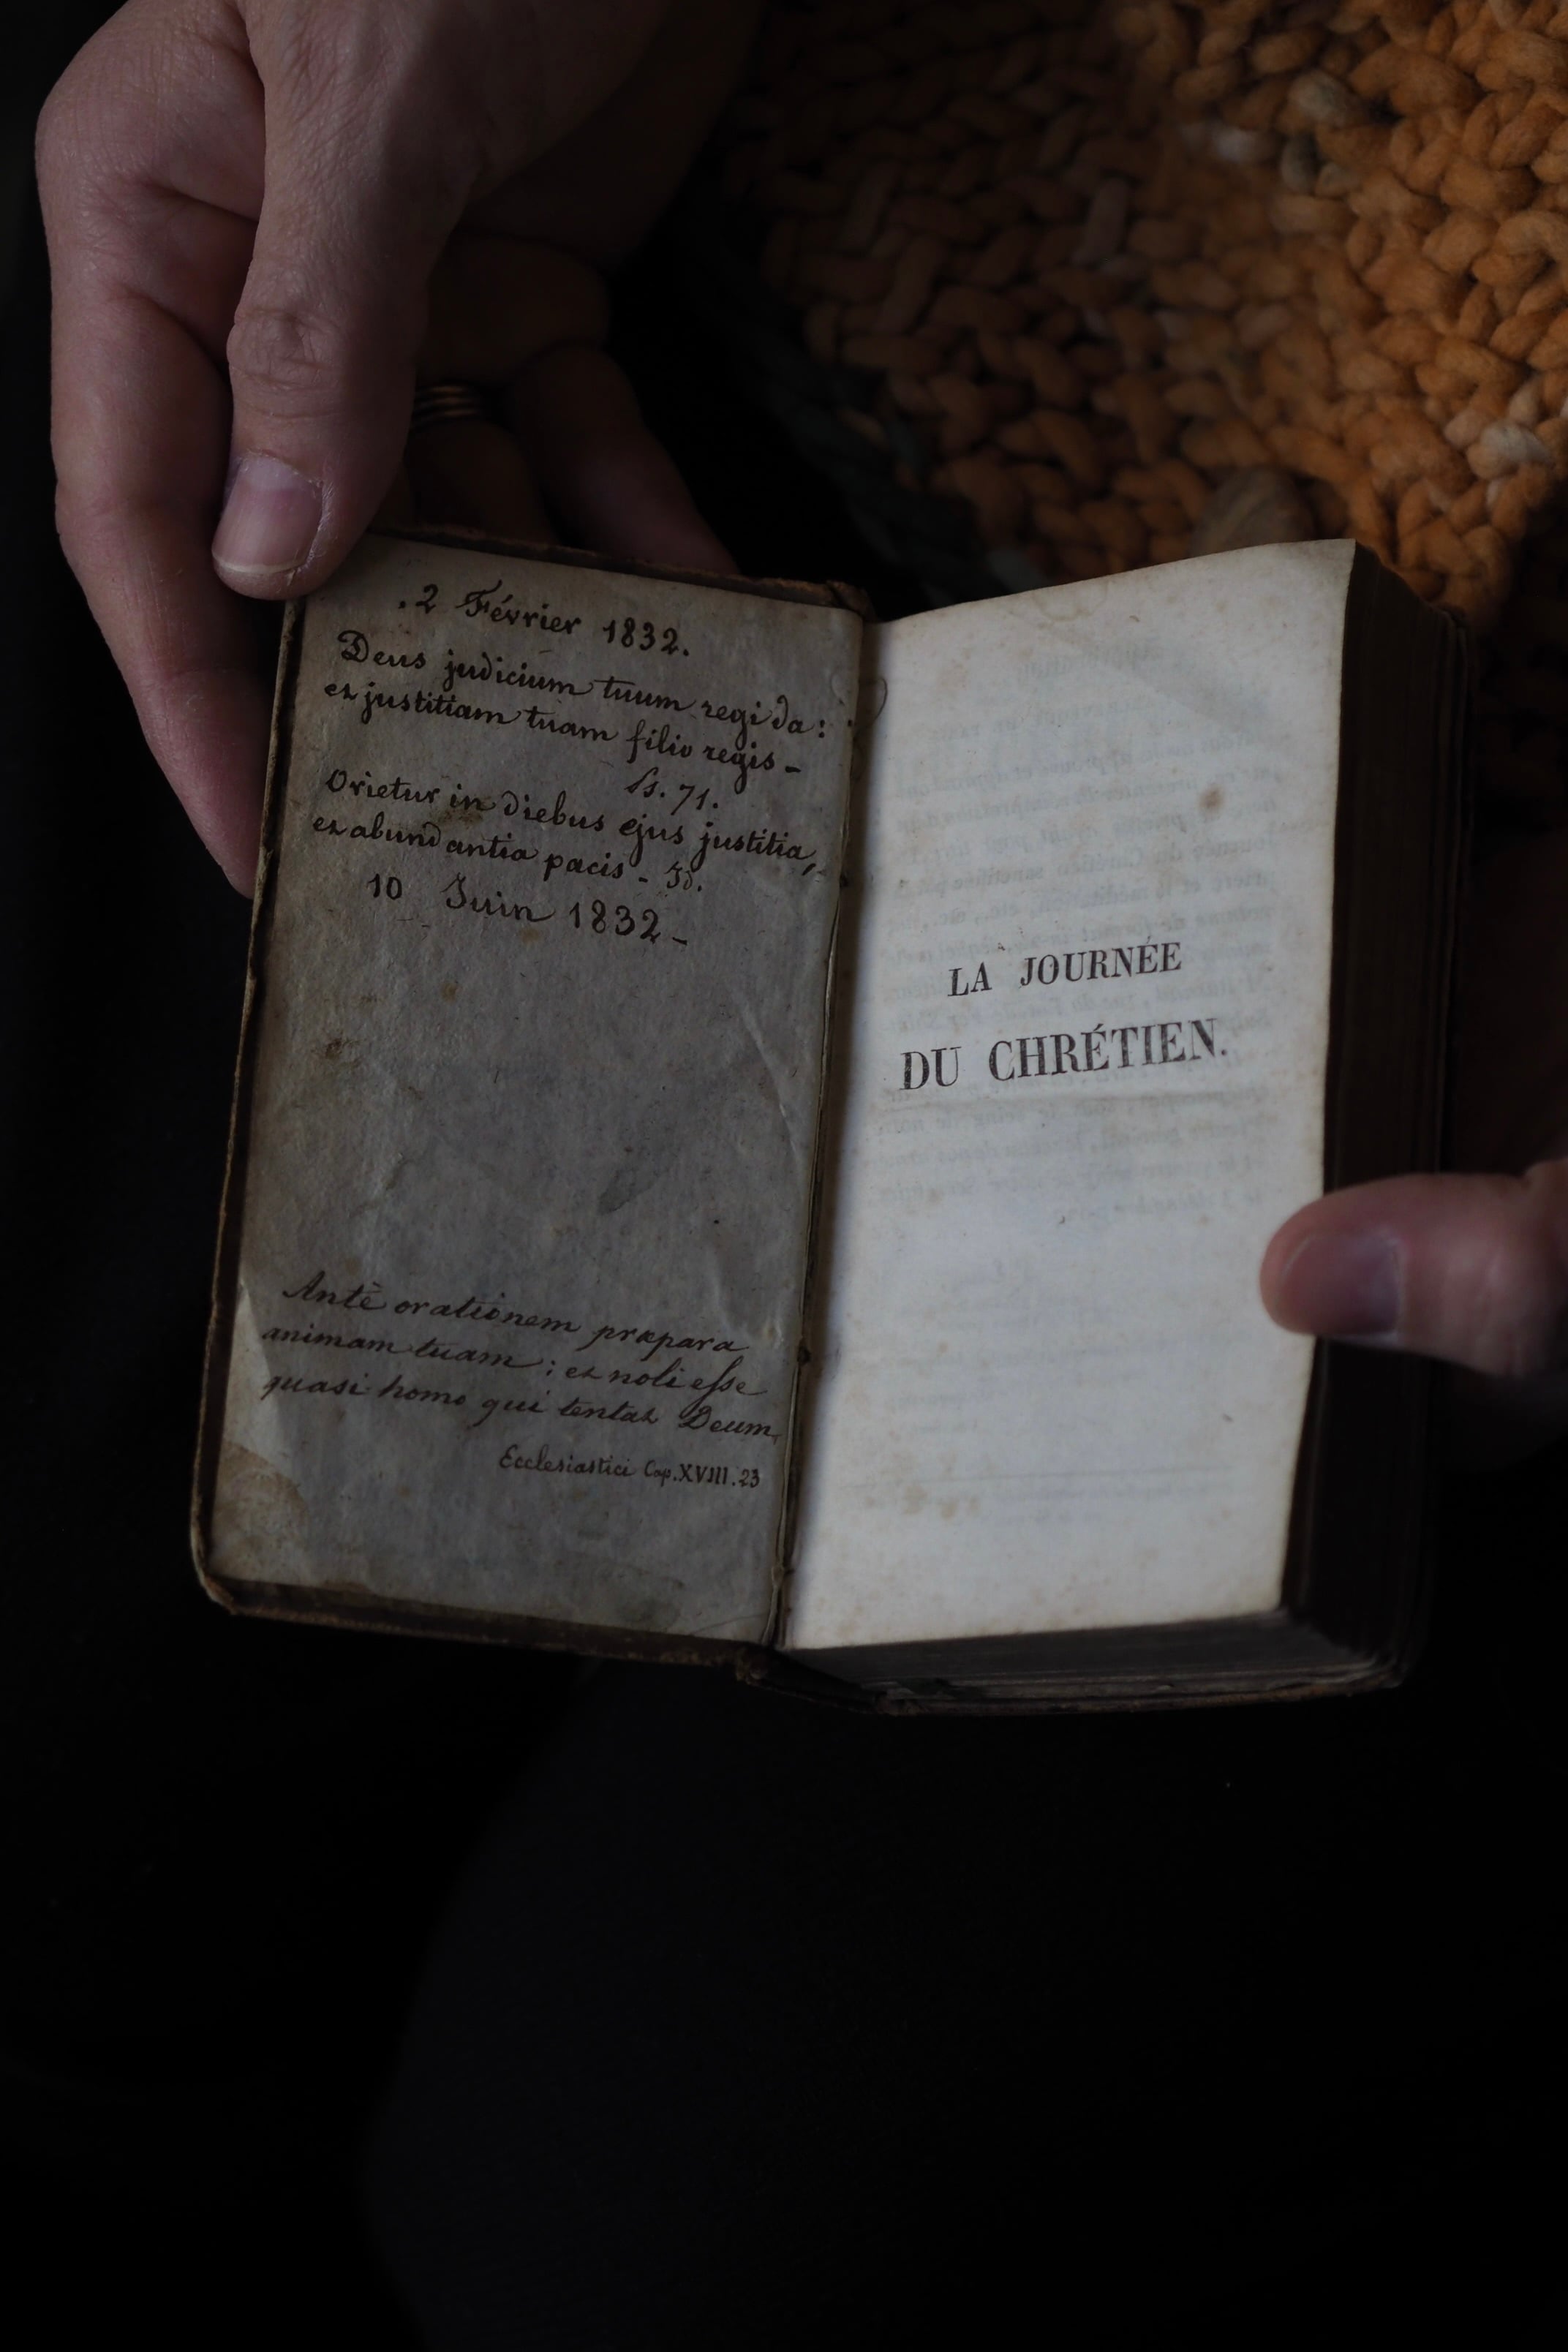 .2 Février 1832.
Deus judicium tuum regi da:
et justitiam tuam filio regis -
Ps. 71.
Orietur in diebus ejus justitia,
et abundantia pacis - Id.
10 Juin 1832 -
Antè orationem præpara
animam tuam : et noli esse
quasi homo qui tentat Deum,
Ecclesiastici Cap. XVIII. 23
LA JOURNÉE
DU CHRÉTIEN.